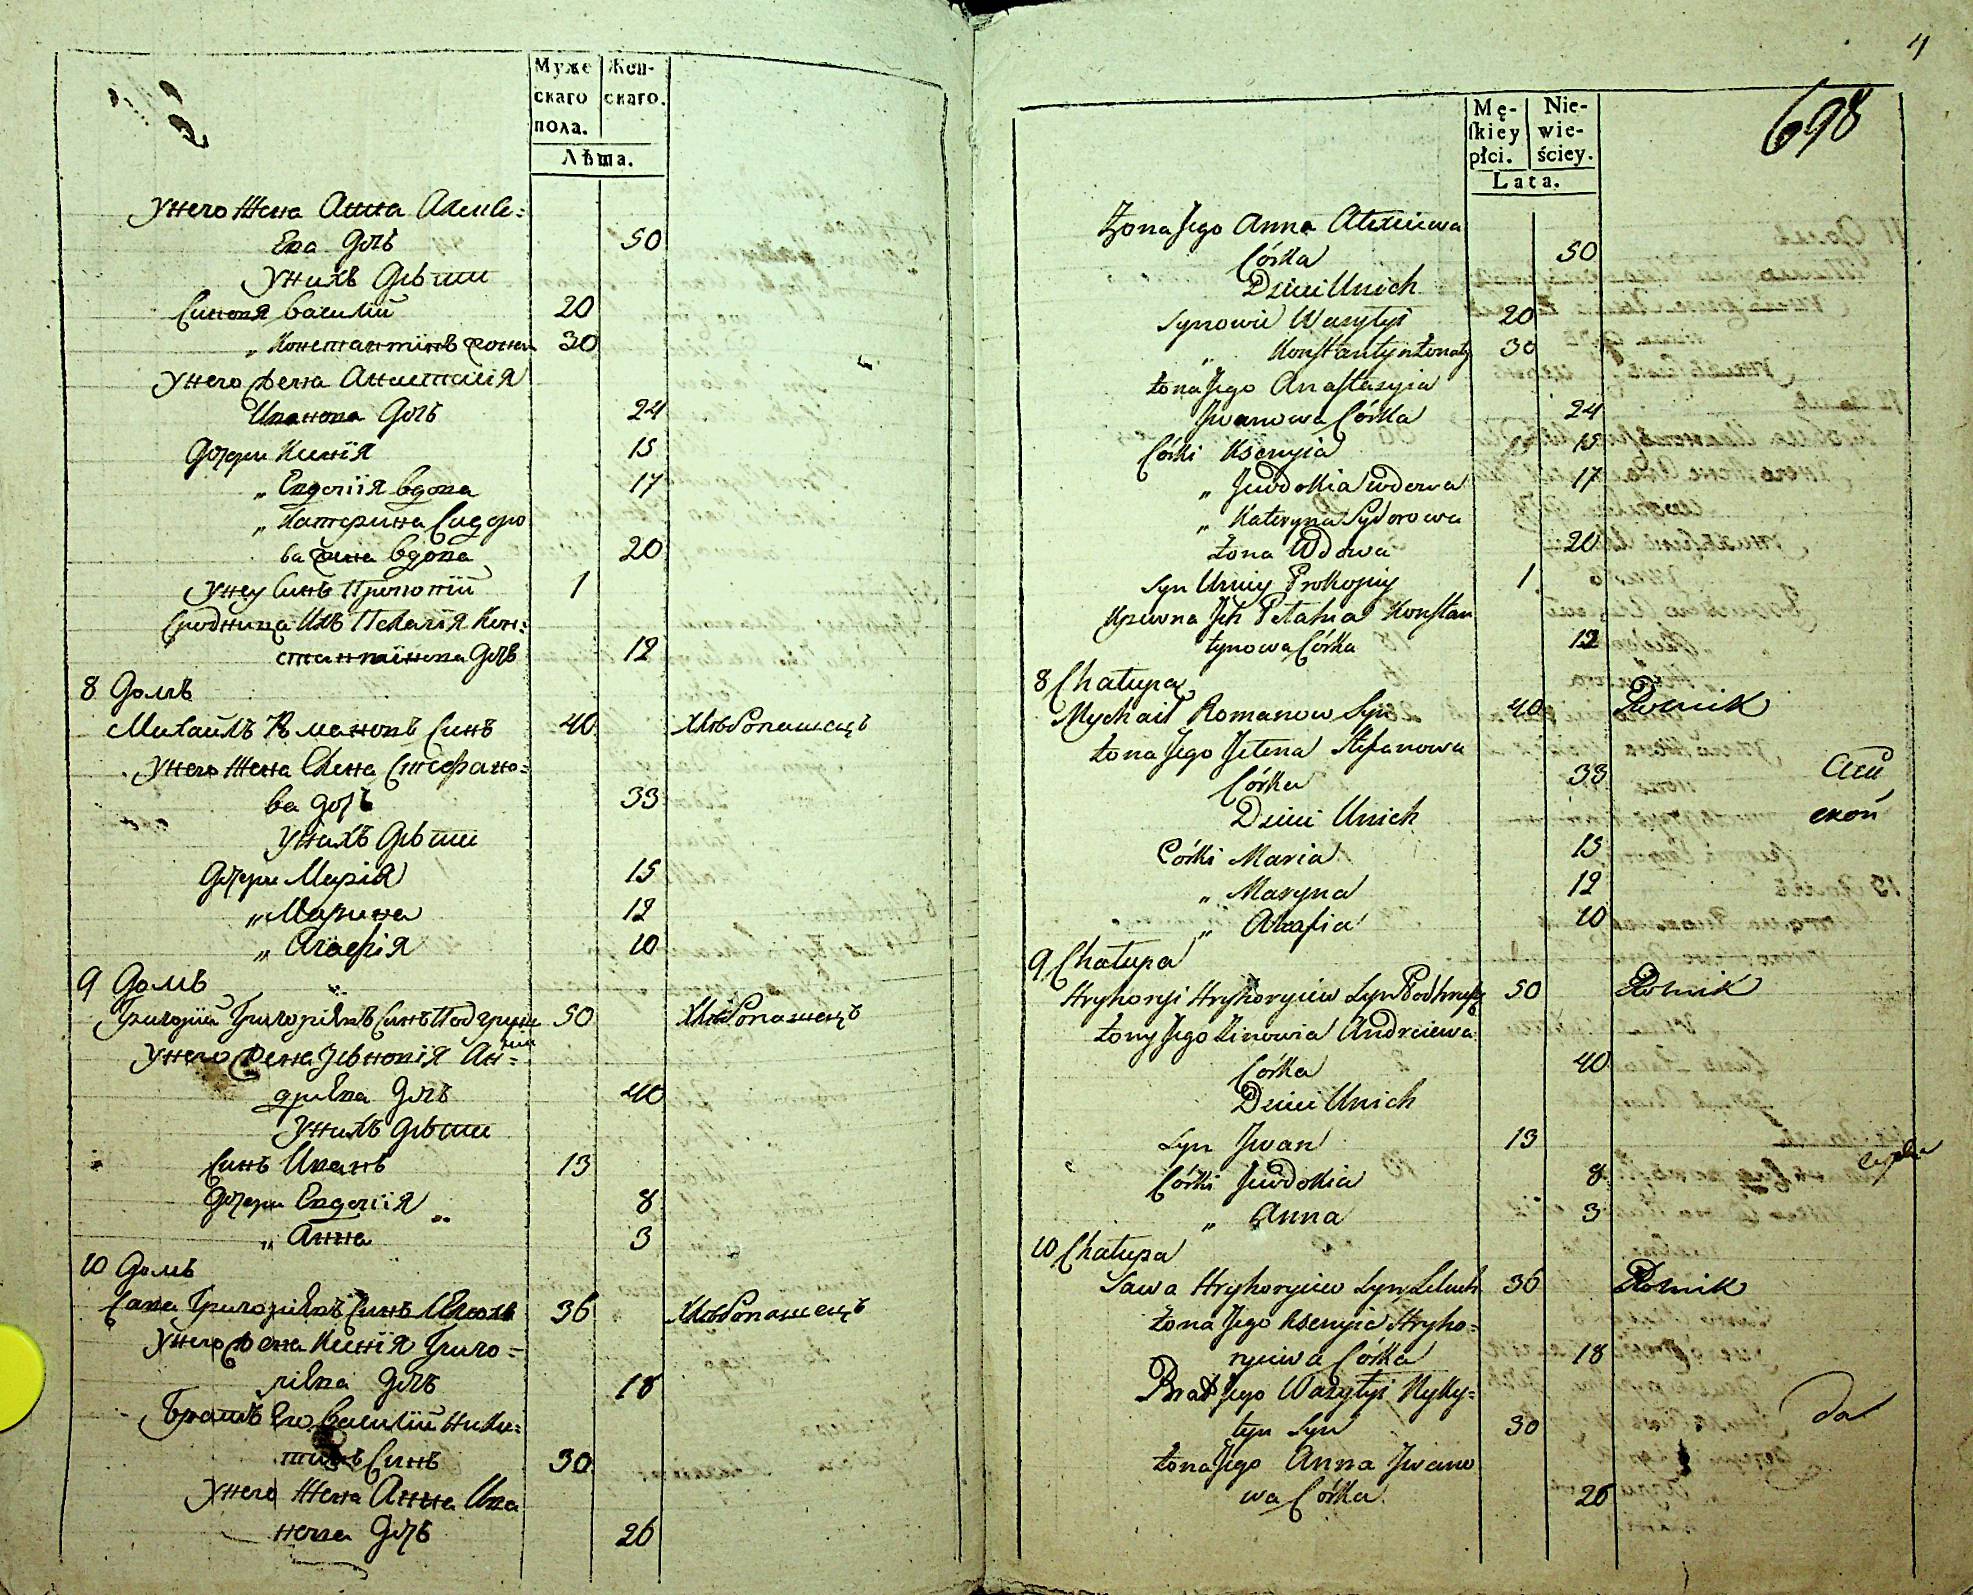 Муже
скаго
пола.
Жен-
скаго.
Лѣта.
У него жена Анна Алексѣ=
ева дочь 50
У нихъ дѣти
Синовя Василий 20
„ Константинъ жонат 30
У него жена Анастасия
Иванова дочь 24
Дочери Ксения 15
„ Евдокия вдова 17
„ Катерина Сидоро
ва жена вдова 20
У неу синъ Прокопий 1
Сродница ихъ Пелагия Кон=
стантинова дочь 12
8 Домъ
Михаилъ Романовъ синъ 40 Хлѣбопашецъ
У него жена Елена Стефано=
ва дочь 33
У нихъ дѣти
Дочери Мария 15
„ Марина 12
„ Агафия 10
9 Домъ
Григорий Григориевъ синъ 50 Хлѣбопашецъ
У него жена Зѣновия Ан=
дриева дочь 40
У нихъ дѣти
Синъ Иванъ 13
Дочери Евдокия 8
„ Анна 3
10 Домъ
Сава Григориевъ синъ 36 Хлѣбопашецъ
У него жена Ксения Григо=
риева дочь 18
Братъ его Василий Ники=
тинъ синъ 30
У него жена Анна Ива
нова дочь 26
4
698
Mę-
ſkiey
płci.
Nie-
wie-
ściey.
Lata.
Żona Jego Anna Alexiiewa
Córka 50
Dzieci Unich
Synowie Wasylyi 20
„ Konstantyn żonaty 30
żona Jego Anastasyia
Jwanowa Córka 24
Córki Ksenyia 15
„ Jewdokia wdowa 17
„ Kateryna Sydorowa
żona Wdowa 20
Syn Uniey Prokopiy 1
Krewna Jch Pelahia Konstan
tynowa Córka 12
8 Chałupa
Mychaił Romanow Syn 40 Rolnik
żona Jego Jelena Stefanowa
Córka 33
Dzieci Unich
Córki Maria 15
„ Maryna 12
„ Ahafia 10
9 Chałupa
Hryhoryi Hryhoryiew Syn 50 Rolnik
żony Jego Zinowia Andreiewa
Córka 40
Dzieci Unich
Syn Jwan 13
Córki Jewdokia 8
„ Anna 3
10 Chałupa
Sawa Hryhoryiew Syn 36 Rolnik
żona Jego Ksenyia Hryho=
ryiewa Córka 18
Brat Jego Wasylyi Nyky=
tyn Syn 30
żona Jego Anna Jwano
wa Córka 26
ской
да